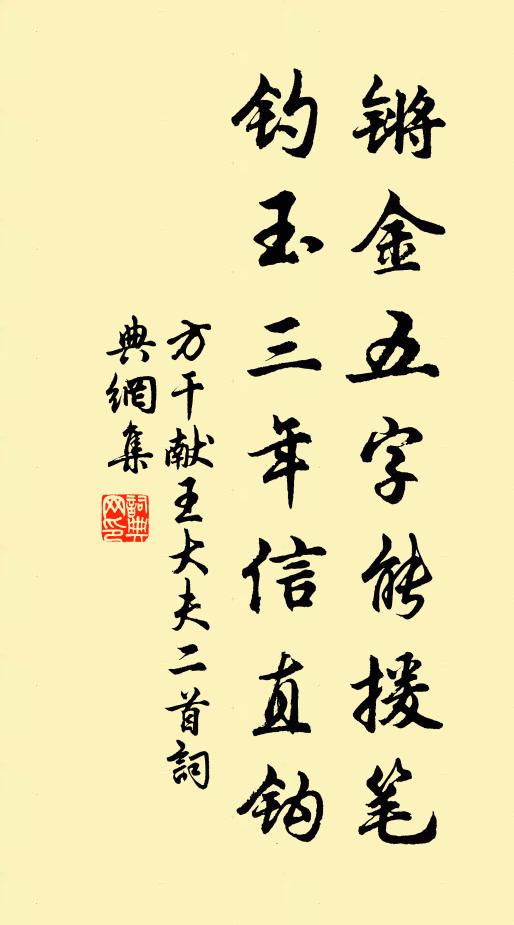 锵金五字能援笔
钓玉三年信直钩
方干献王大夫二首詞
典網集
詞典
网印